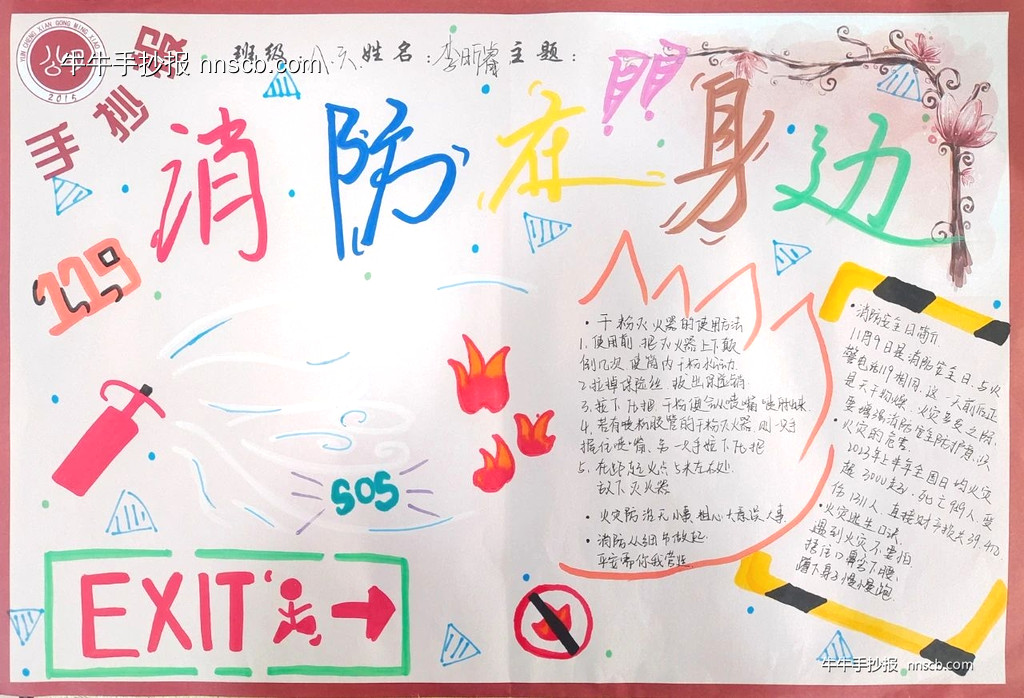 YUN CHENG XIAN GONG MING XIAO
2015
牛牛手抄报 nnscb.com
手抄报
班级：八六 姓名：李昕睿 主题：
消防在身边
119
SOS
EXIT
·干粉灭火器的使用方法
1.使用前，把灭火器上下颠
倒几次，使筒内干粉松动.
2.拉掉保险丝，拔出保险销
3.按下压把，干粉便会从喷嘴喷射出来.
4.若有喷粉胶管的干粉灭火器，则一手
握住喷嘴，另一手按下压把
5.在距起火点5米左右处.
放下灭火器
·火灾防治无小事，粗心大意误人事
·消防从细节做起
平安需你我营造
·消防安全日简介.
11月9日是消防安全日.与火
警电话119相同.这一天前后正
是天干物燥，火灾多发之际，
要增强消防安全防护意识
·火灾的危害.
2023年上半年全国日均火灾
超3000起，死亡959人，受
伤1311人，直接财产损失39.4亿
·火灾逃生口诀.
遇到火灾不要怕.
捂住口鼻弯下腰.
蹲下身子慢慢跑.
牛牛手抄报 nnscb.com